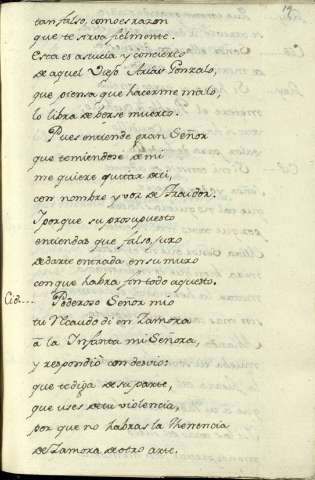 tan falso, como es razon
que te sirva fielmente.
Esta es asucia y concierto
de aquel Viejo Arias Gonzalo,
que piensa que hacerme malo,
lo libra de berse muerto.
Pues entiende gran Señor
que temiendose de mi
me quiere quitar de ti,
con nombre y voz de Traidor.
Y porque su prosupuesto
entiendas que falso, juro
de darte entrada en su muro
con que habra fin todo aquesto.
Cid.... Poderoso Señor mio
tu Recaudo di en Zamora
a la Infanta mi Señora,
y respondió con desvio:
que te diga de su parte,
que uses de tu violencia,
por que no habras la Thenencia
de Zamora de otro arte.